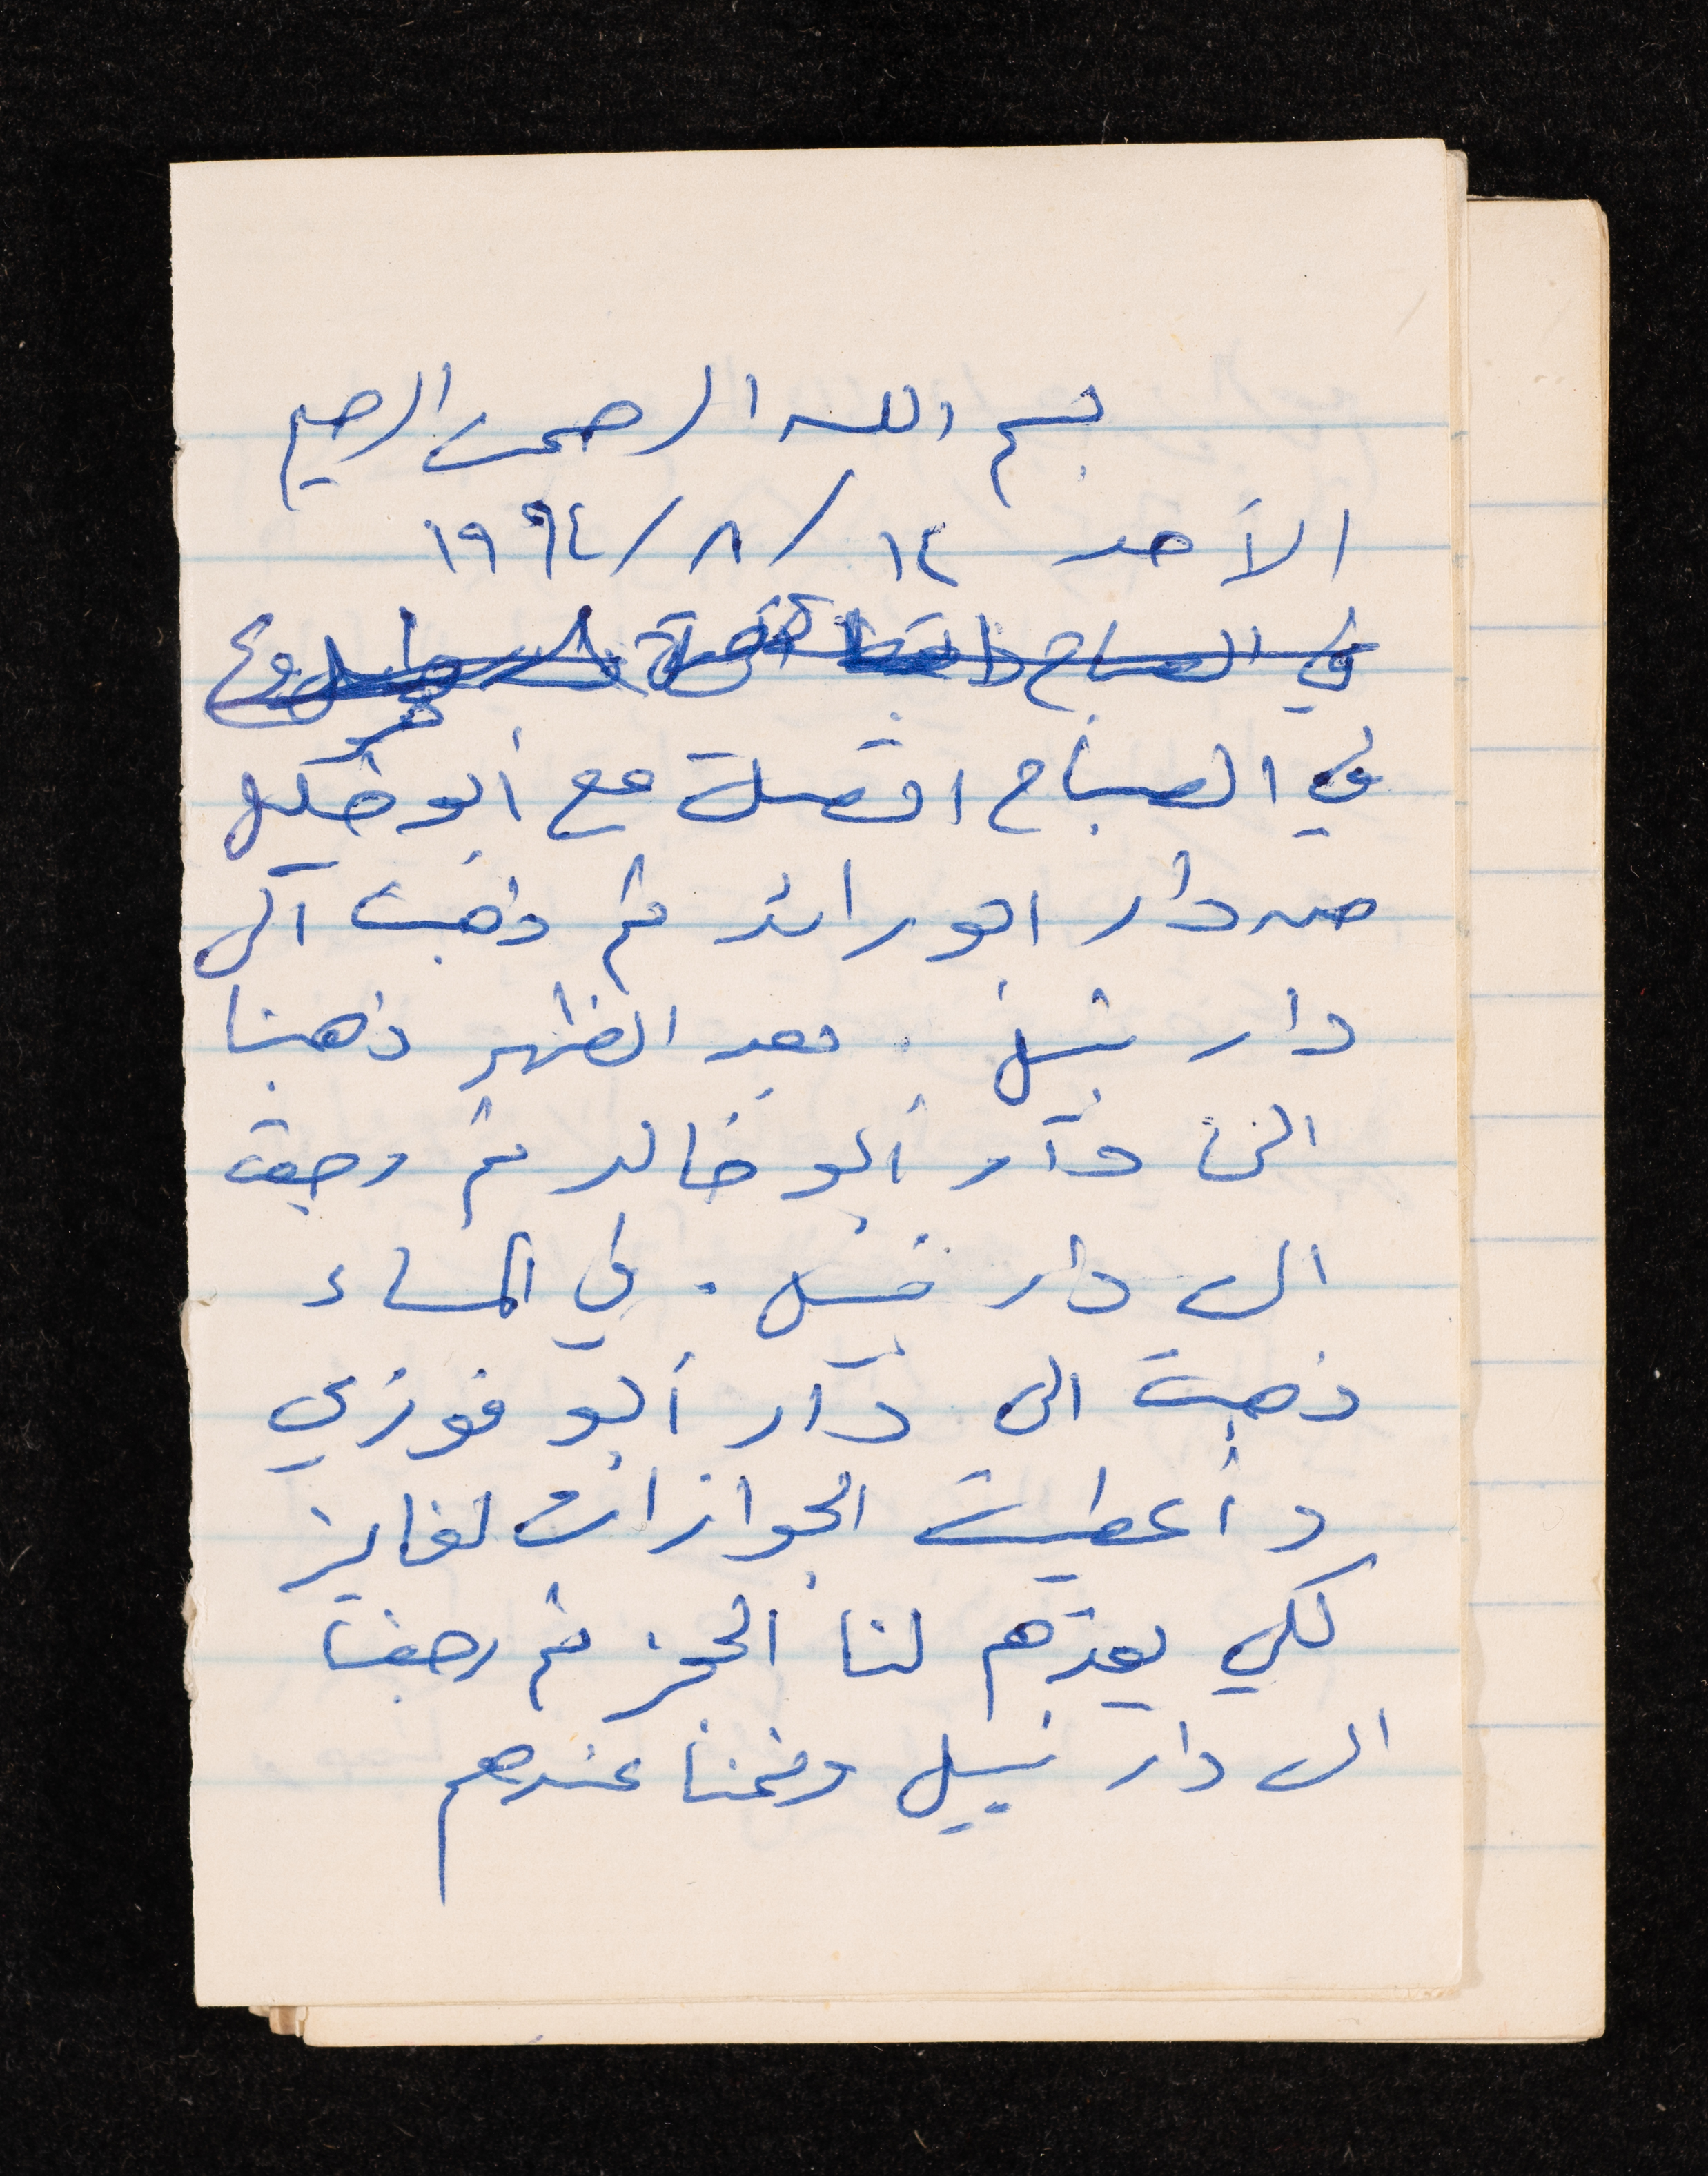 بسم الله الرحمن الرحيم
الأحد ١٤/٨/١٩٩٤
في الصباح
في الصباح اتصلت مع أبو خليل
من دار ابو رائد ثم ذهبت الى
دار نبيل . بعد الظهر ذهبنا
الى دار أبو خالد ثم رجعت
الى دار نبيل . في المساء
ذهبت الى دار أبو فوزي
و أعطيت الجوازات لفايز
لكي يعدهم لنا الحجز ثم رجعنا
الى دار نبيل ونمنا عندهم